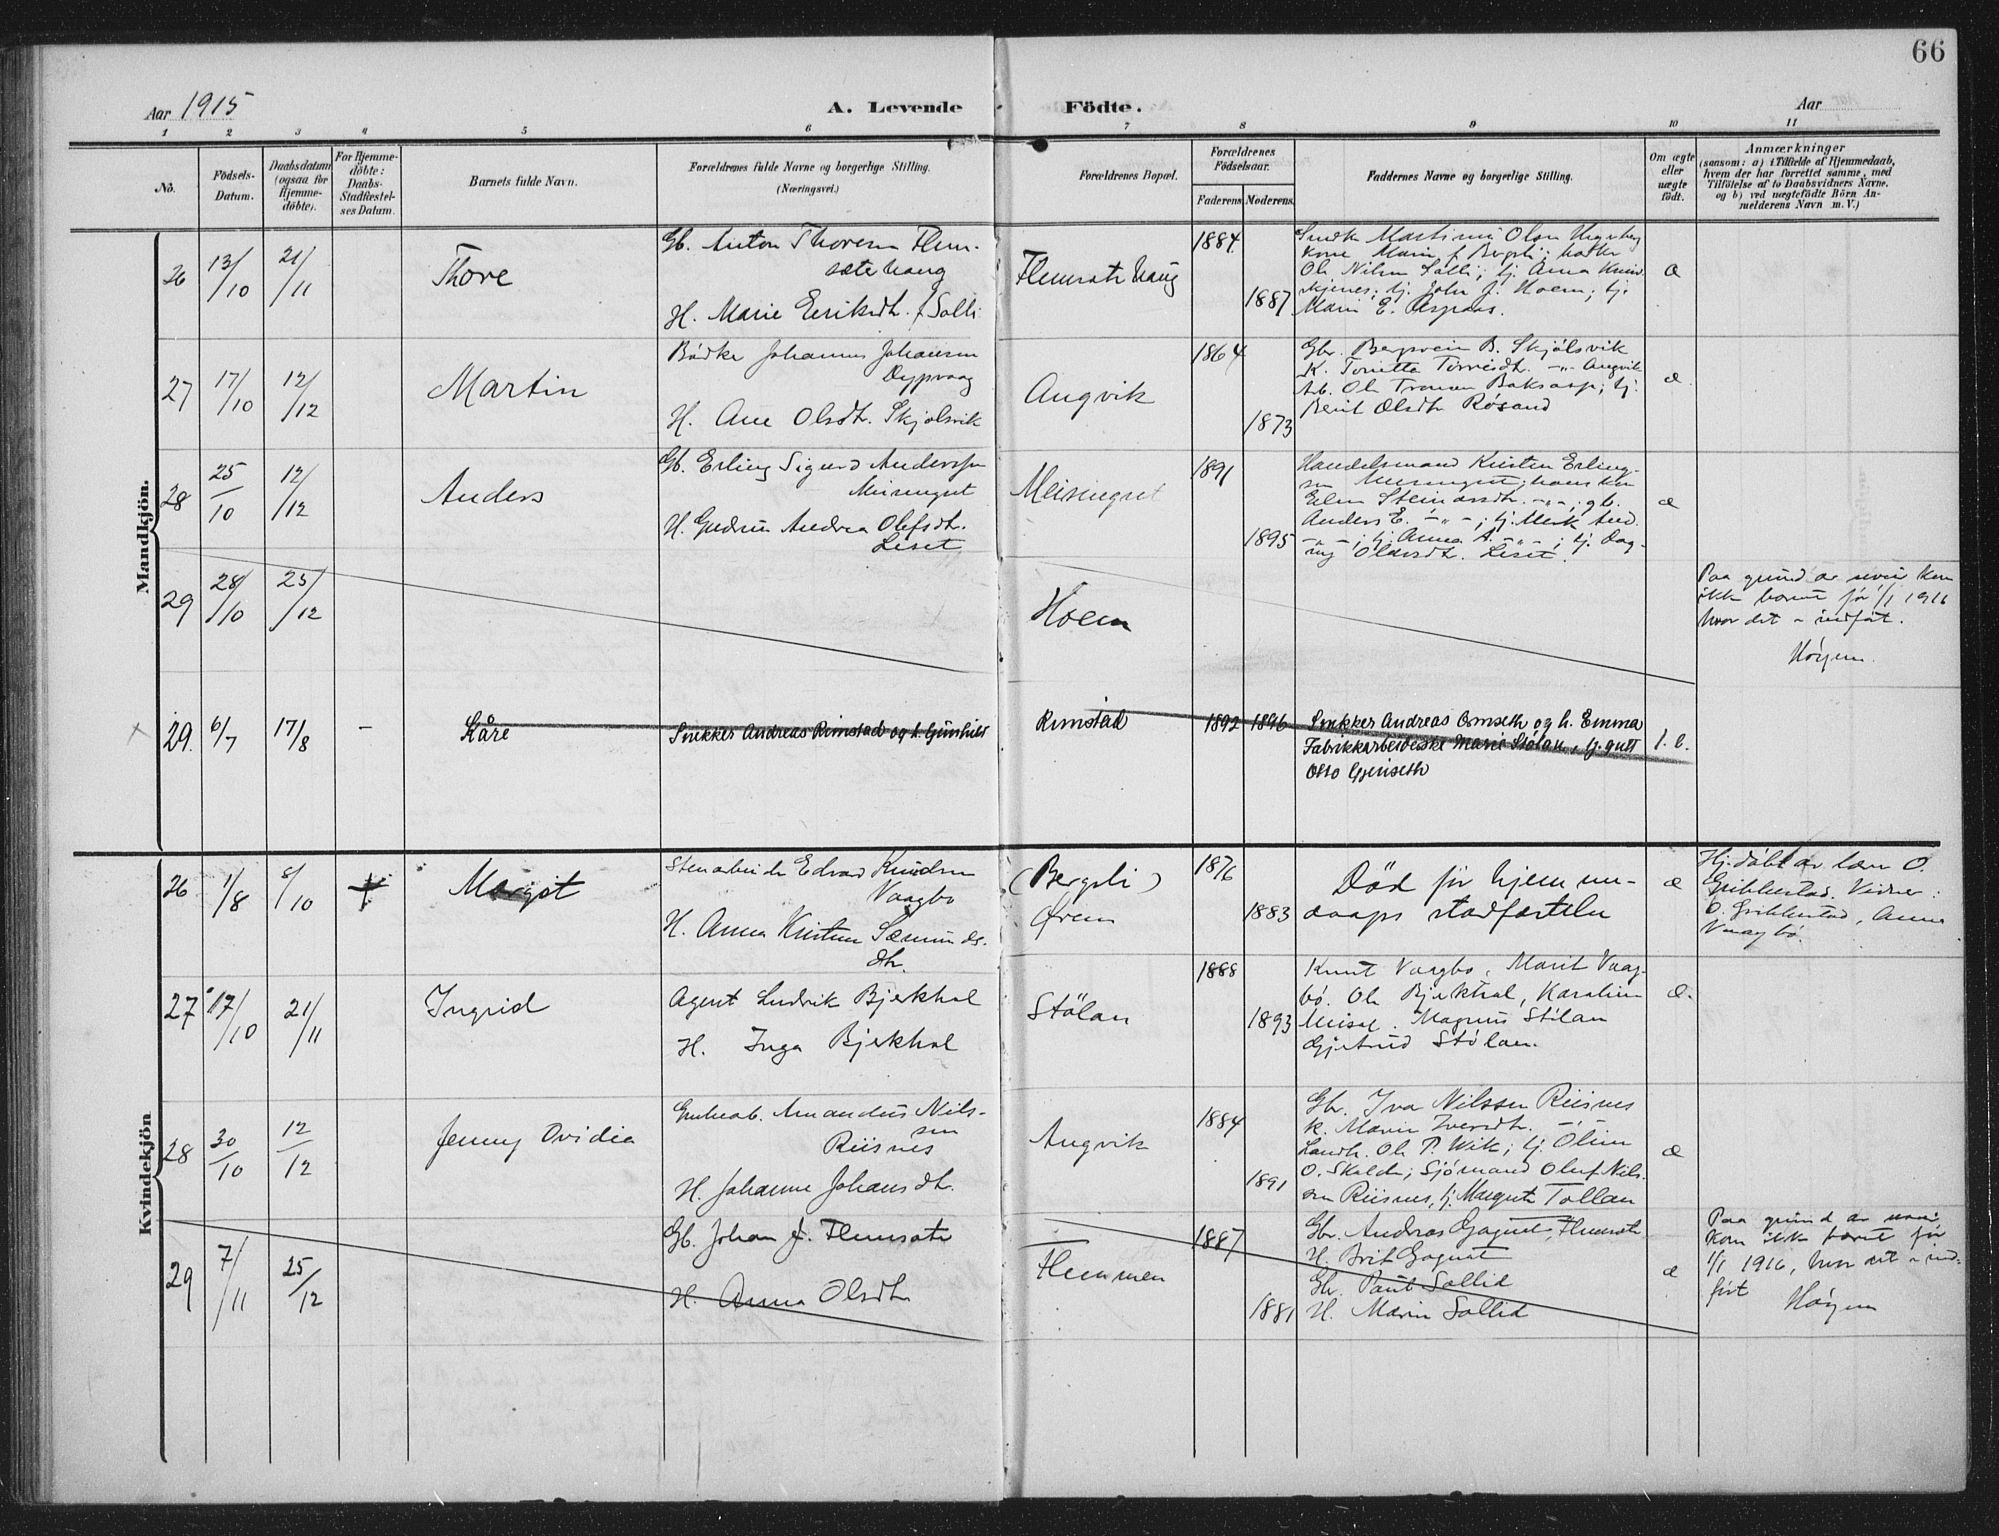 66
Aar 1915
A. Levende Födte.
Aar
1 2 3 4 5 6 7 8 9 10 11
No.
Födsels-
Datum.
Daabsdatum
(ogsaa for
Hjemme-
döbte).
For Hjemme-
döbte:
Daabs-
Stadfæstel-
ses Datum.
Barnets fulde Navn.
Forældrenes fulde Navne og borgerlige Stilling.
(Næringsvei.)
Forældrenes Bopæl.
Forældrenes
Födselsaar.
Faderens
Moderens
Faddernes Navne og borgerlige Stilling.
Om ægte
eller
uægte
födt.
Anmærkninger
(saasom: a) i Tilfælde af Hjemmedaab,
hvem der har forrettet samme, med
Tilföielse af to Daabsvidners Navne,
og b) ved uægtefödte Börn An-
melderens Navn m. V.)
Mandkjön.
26
13/10
21/11
Thore
Gb. Anton Thoresen Flem-
sæterhaug
H. Marie Eriksdt. f. Solli
Flemsæterhaug
1884
1887
Martinus Olsen
Kone Marie f. Bergsli;
Ole Nilsen Solli; tj. Anna
tj. John J. Hoem; tj.
Marie E. Aspaas.
æ
27
17/10
12/12
Martin
Bödker Johannes Johansen
Dypvaag
H. Ane Olsdt. Skjölsvik
Angvik
1864
1873
Gbr. Bergsvein B. Skjölsvik
K. Toretta Torresdt. -"- Angvik
Arb. Ole Tronsen Boksasp; tj.
Berit Olsdtr Rösand
æ
28
25/10
12/12
Anders
Gb. Erling Sigurd Anderssen
Meisingset
H. Gudrun Andrea Olefsdt.
Liset
Meisingset
1891
1895
Handelsmand Kristen Erling-
sen Meisingset; hans kone
Elen Steinarsdt. -"-; gb.
Anders E. -"-; tj. And.
-"-; tj. Anna A. -"-; tj. Dag-
ny Olavsdt. Liset.
æ
29
28/10
25/12
Hoem
Paa grund av uveir kom
ikke barnet før 1/1 1916
hvor det er indført.
Höyem.
29.
6/7
17/8
-
Kåre
Snekker Andreas Rimstad og h. Gunhild
Rimstad
1892
1896
Snekker Andreas Ormseth og h. Emma
Fabrikkarbeiderske Marie Stölan, tj. gutt
Otto Gjeriseth
Kvindekjön
26
1/8
8/10
Margit
Stenarbeider Edvard Knudsen
Vaagbø
H. Anna Kristine Sæmunds-
dtr.
(Bergsli)
Ørem
1876
1883
Død før hjemme-
daaps stadfæstelse
æ
Hj.døbt av lærer O.
Gribbestad. Vidner:
O. Gribbestad, Anna
Vaagbø.
27
17/10
21/11
Ingrid
Agent Ludvik Bjerkhol
H. Inga Bjerkhol
Stölan
1888
1893
Knut Vaagbø, Marit Vaag-
bø. Ole Bjerkhol, Karoline
Magnus Stölan
Gjertrud Stölan.
æ.
28
30/10
12/12
Jenny Ovidia
Amandus Nils-
sen
Riisnes
H. Johanne Johansdt.
Angvik
1884
1891
Gbr. Iver Nilssen Riisnes
K. Marie Iversdt. -"-
Landh. Ole P. Wik; tj. Oline
O. Skalde; Sjömand Oluf Nils-
sen Riisnes, tj. Margrete Tollan
æ
29
7/11
25/12
Gb. Johan J. Flemsæter
H. Anna Olsdtr
Flemmen
1887
1881
Gbr. Andreas Gagnet, Flemsæter
H. Brit Gagnet
Gbr. Paul Sollid
H. Marie Sollid
æ
Paa grund av uveir
kom ikke barnet før
1/1 1916, hvor det er ind-
ført
Höyem